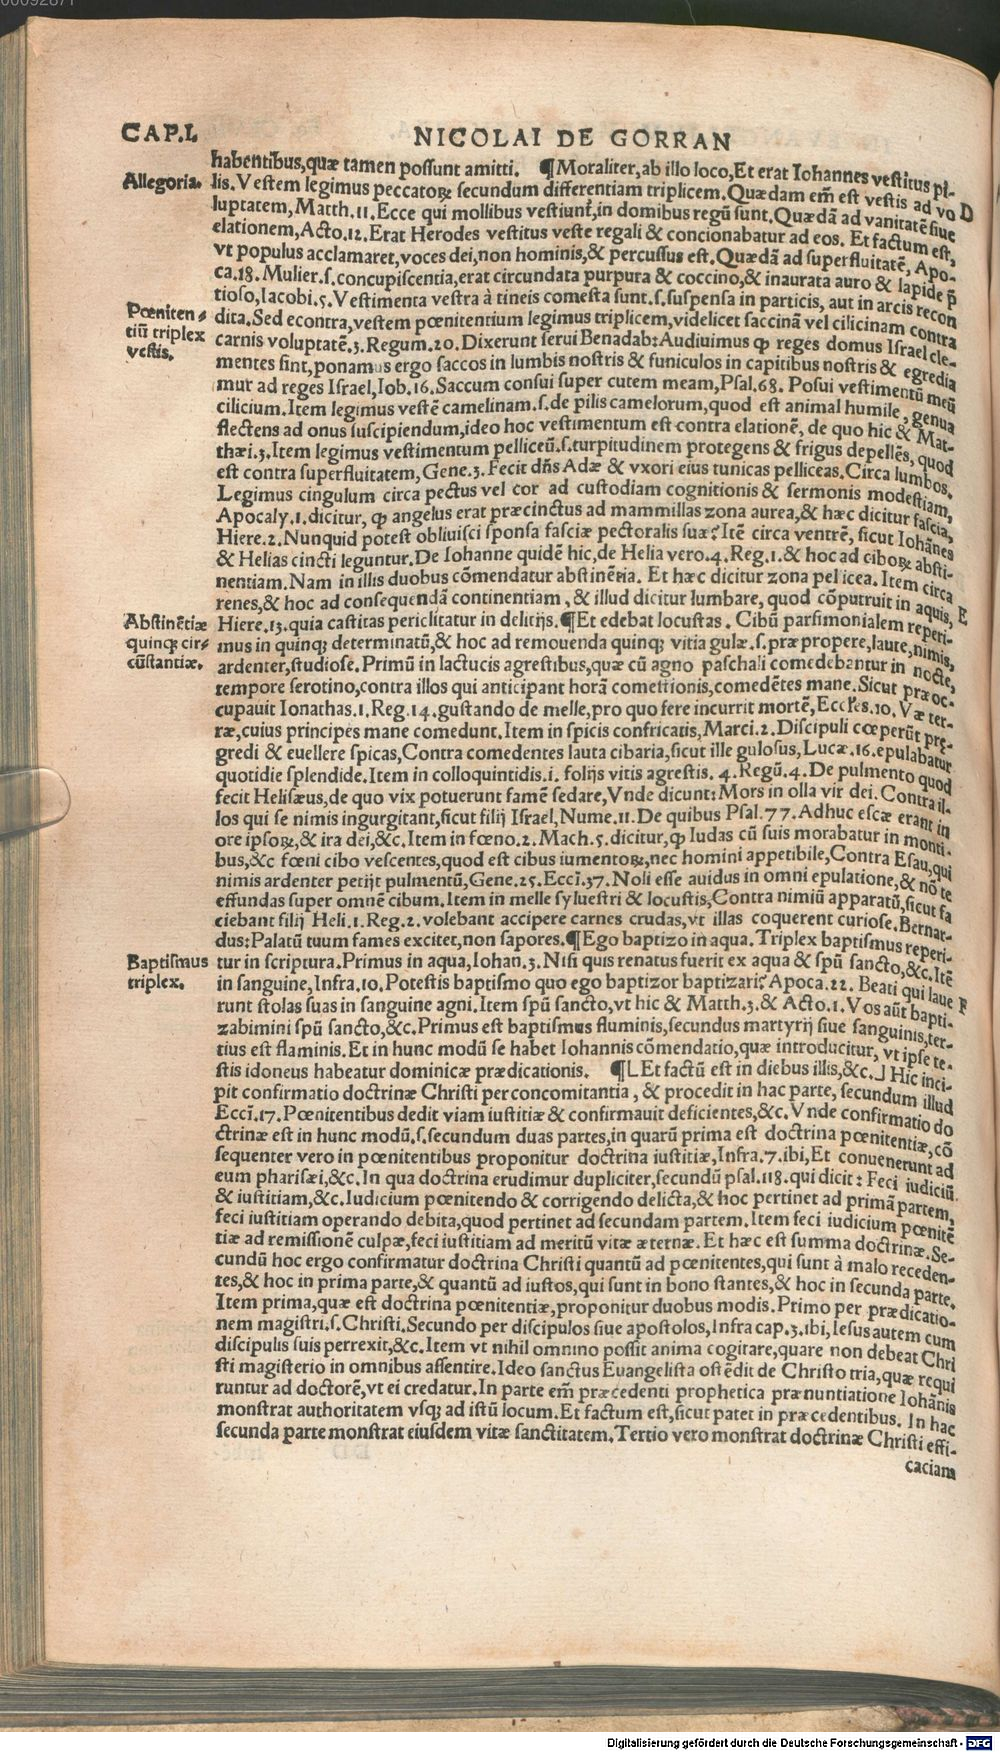 00092871
CAP.I.
NICOLAI DE GORRAN
habentibus,quæ tamen possunt amitti. ¶Moraliter,ab illo loco,Et erat Iohannes vestitus pi-
Allegoria.
lis.Vestem legimus peccatoꝝ secundum differentiam triplicem.Quædam em̃ est vestis ad vo D
luptatem,Matth.11.Ecce qui mollibus vestiunt̃,in domibus regũ sunt.Quædã ad vanitatẽ siue
elationem,Acto.12.Erat Herodes vestitus veste regali & concionabatur ad eos. Et factum est,
vt populus acclamaret,voces dei,non hominis,& percussus est.Quædã ad superfluitatẽ, Apo-
ca.18.Mulier.s.concupiscentia,erat circundata purpura & coccino,& inaurata auro & lapide p̃
tioso,Iacobi.5.Vestimenta vestra à tineis comesta sunt.s.suspensa in particis, aut in arcis recon
Pœniten-
tiũ triplex
vestis.
dita.Sed econtra,vestem pœnitentium legimus triplicem,videlicet saccinã vel cilicinam contra
carnis voluptatẽ.3.Regum.20.Dixerunt serui Benadab:Audiuimus ꝙ reges domus Israel cle-
mentes sint,ponamus ergo saccos in lumbis nostris & funiculos in capitibus nostris & egredia
mur ad reges Israel,Iob.16.Saccum consui super cutem meam,Psal.68. Posui vestimentũ meũ
cilicium.Item legimus vestẽ camelinam.s.de pilis camelorum,quod est animal humile, genua
flectens ad onus suscipiendum,ideo hoc vestimentum est contra elationẽ, de quo hic & Mat-
thæi.3.Item legimus vestimentum pelliceũ.s.turpitudinem protegens & frigus depellẽs, quod
est contra superfluitatem,Gene.3.Fecit dñs Adæ & vxori eius tunicas pelliceas.Circa lumbos.
Legimus cingulum circa pectus vel cor ad custodiam cognitionis & sermonis modestiam,
Apocaly.1.dicitur, ꝙ angelus erat præcinctus ad mammillas zona aurea,& hæc dicitur fascia,
Hiere.2.Nunquid potest obliuisci sponsa fasciæ pectoralis suæ? Itẽ circa ventrẽ, sicut Iohãnes
& Helias cincti leguntur.De Iohanne quidẽ hic,de Helia vero.4.Reg.1.& hoc ad ciboꝝ absti-
nentiam.Nam in illis duobus cõmendatur abstinẽtia. Et hæc dicitur zona pellicea. Item circa
renes,& hoc ad consequendã continentiam, & illud dicitur lumbare, quod cõputruit in aquis, E
Abstinẽtiæ
quinqꝫ cir-
cũstantiæ.
Hiere.13.quia castitas periclitatur in delitijs.¶Et edebat locustas. Cibũ parsimonialem reperi-
mus in quinqꝫ determinatũ,& hoc ad remouenda quinqꝫ vitia gulæ.s.præpropere,laute,nimis,
ardenter,studiose.Primũ in lactucis agrestibus,quæ cũ agno paschali comedebantur in nocte,
tempore serotino,contra illos qui anticipant horã comestionis,comedẽtes mane.Sicut præoc-
cupauit Ionathas.1.Reg.14.gustando de melle,pro quo fere incurrit mortẽ,Eccles.10.Væ ter-
ræ,cuius principes mane comedunt.Item in spicis confricatis,Marci.2.Discipuli cœperũt pre-
gredi & euellere spicas,Contra comedentes lauta cibaria,sicut ille gulosus,Lucæ.16.epulabatur
quotidie splendide.Item in colloquintidis.i. folijs vitis agrestis. 4.Regũ.4.De pulmento quod
fecit Helisæus,de quo vix potuerunt famẽ sedare,Vnde dicunt:Mors in olla vir dei.Contra il-
los qui se nimis ingurgitant,sicut filij Israel,Nume.11.De quibus Psal.77.Adhuc escæ erant in
ore ipsoꝝ,& ira dei,&c.Item in fœno.2.Mach.5.dicitur,ꝙ Iudas cũ suis morabatur in monti-
bus,&c fœni cibo vescentes,quod est cibus iumentoꝝ,nec homini appetibile,Contra Esau,qui
nimis ardenter petijt pulmentũ,Gene.25.Eccĩ.37.Noli esse auidus in omni epulatione,& nõ te
effundas super omnẽ cibum.Item in melle syluestri & locustis,Contra nimiũ apparatũ,sicut fa
ciebant filij Heli.1.Reg.2.volebant accipere carnes crudas,vt illas coquerent curiose.Bernar-
dus:Palatũ tuum fames excitet,non sapores.¶Ego baptizo in aqua.Triplex baptismus reperi-
Baptismus
triplex.
tur in scriptura.Primus in aqua,Iohan.3.Nisi quis renatus fuerit ex aqua & spũ sancto,&c.Itẽ
in sanguine,Infra.10.Potestis baptismo quo ego baptizor baptizari? Apoca.22. Beati qui laue F
runt stolas suas in sanguine agni.Item spũ sancto,vt hic & Matth.3.& Acto.1.Vos aũt bapti-
zabimini spũ sancto,&c.Primus est baptismus fluminis,secundus martyrij siue sanguinis,ter-
tius est flaminis.Et in hunc modũ se habet Iohannis cõmendatio,quæ introducitur, vt ipse te-
stis idoneus habeatur dominicæ prædicationis. ¶⌊Et factũ est in diebus illis,&c.⌋Hic inci-
pit confirmatio doctrinæ Christi per concomitantia, & procedit in hac parte, secundum illud
Eccĩ.17.Pœnitentibus dedit viam iustitiæ & confirmauit deficientes,&c.Vnde confirmatio do
ctrinæ est in hunc modũ.s.secundum duas partes,in quarũ prima est doctrina pœnitentiæ,cõ
sequenter vero in pœnitentibus proponitur doctrina iustitiæ,Infra.7.ibi,Et conuenerunt ad
eum pharisæi,&c.In qua doctrina erudimur dupliciter,secundũ psal.118.qui dicit: Feci iudiciũ
& iustitiam,&c.Iudicium pœnitendo & corrigendo delicta,& hoc pertinet ad primã partem,
feci iustitiam operando debita,quod pertinet ad secundam partem.Item feci iudicium pœnitẽ
tiæ ad remissionẽ culpæ,feci iustitiam ad meritũ vitæ æternæ.Et hæc est summa doctrinæ.Se-
cundũ hoc ergo confirmatur doctrina Christi quantũ ad pœnitentes,qui sunt à malo receden-
tes,& hoc in prima parte,& quantũ ad iustos,qui sunt in bono stantes,& hoc in secunda parte.
Item prima,quæ est doctrina pœnitentiæ,proponitur duobus modis.Primo per prædicatio-
nem magistri.s.Christi.Secundo per discipulos siue apostolos,Infra cap.3.ibi,Iesus autem cum
discipulis suis perrexit,&c.Item vt nihil omnino possit anima cogitare,quare non debeat Chri
sti magisterio in omnibus assentire.Ideo sanctus Euangelista ostẽdit de Christo tria,quæ requi
runtur ad doctorẽ,vt ei credatur.In parte em̃ præcedenti prophetica prænuntiatione Iohãnis
monstrat authoritatem vsqꝫ ad istũ locum.Et factum est,sicut patet in præcedentibus. In hac
secunda parte monstrat eiusdem vitæ sanctitatem.Tertio vero monstrat doctrinæ Christi effi-
caciam
Digitalisierung gefördert durch die Deutsche Forschungsgemeinschaft - DFG